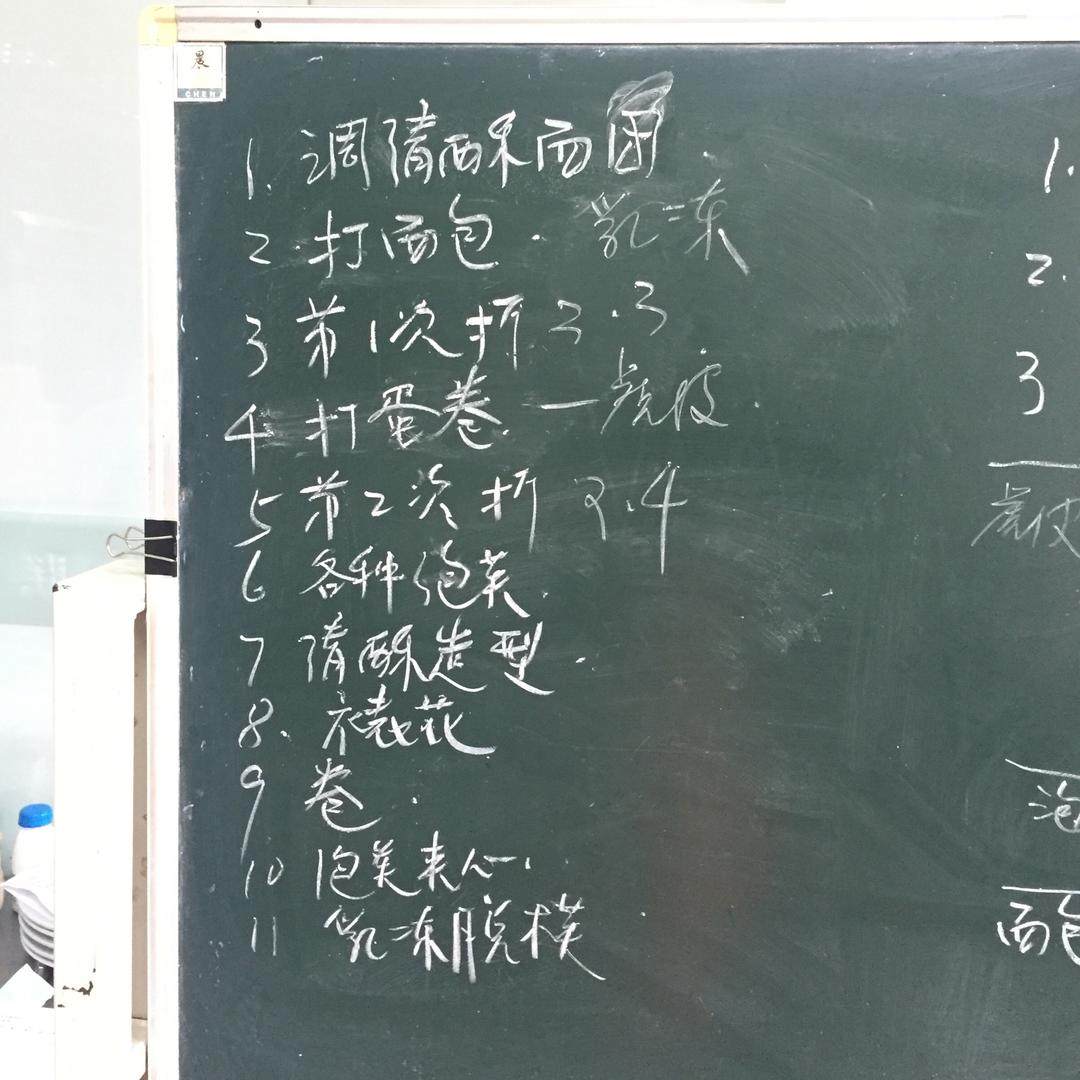 晨
CHEN
1. 调清酥面团.
2. 打面包. 乳冻
3 第1次折 3.3
4 打蛋卷. — 虎皮.
5 第2次折 3.4
6 各种泡芙.
7 清酥造型.
8. 裱花
9 卷.
10 泡芙夹心.
11 乳冻脱模
1.
2.
3
虎皮
泡
面包